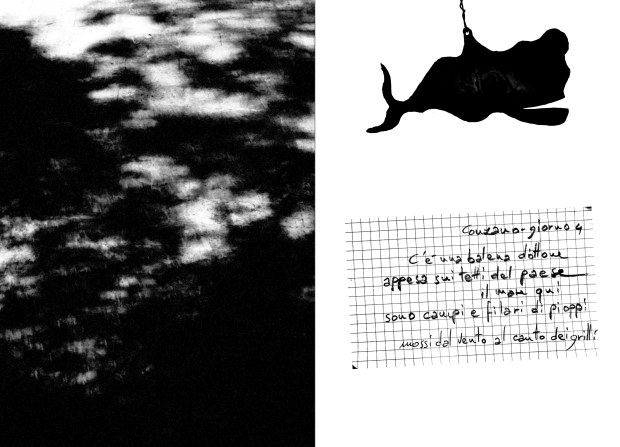 Conzano - giorno 4
C'è una balena d'ottone
appesa sui tetti del paese
il mare qui
sono campi e filari di pioppi
mossi dal vento al canto dei grilli